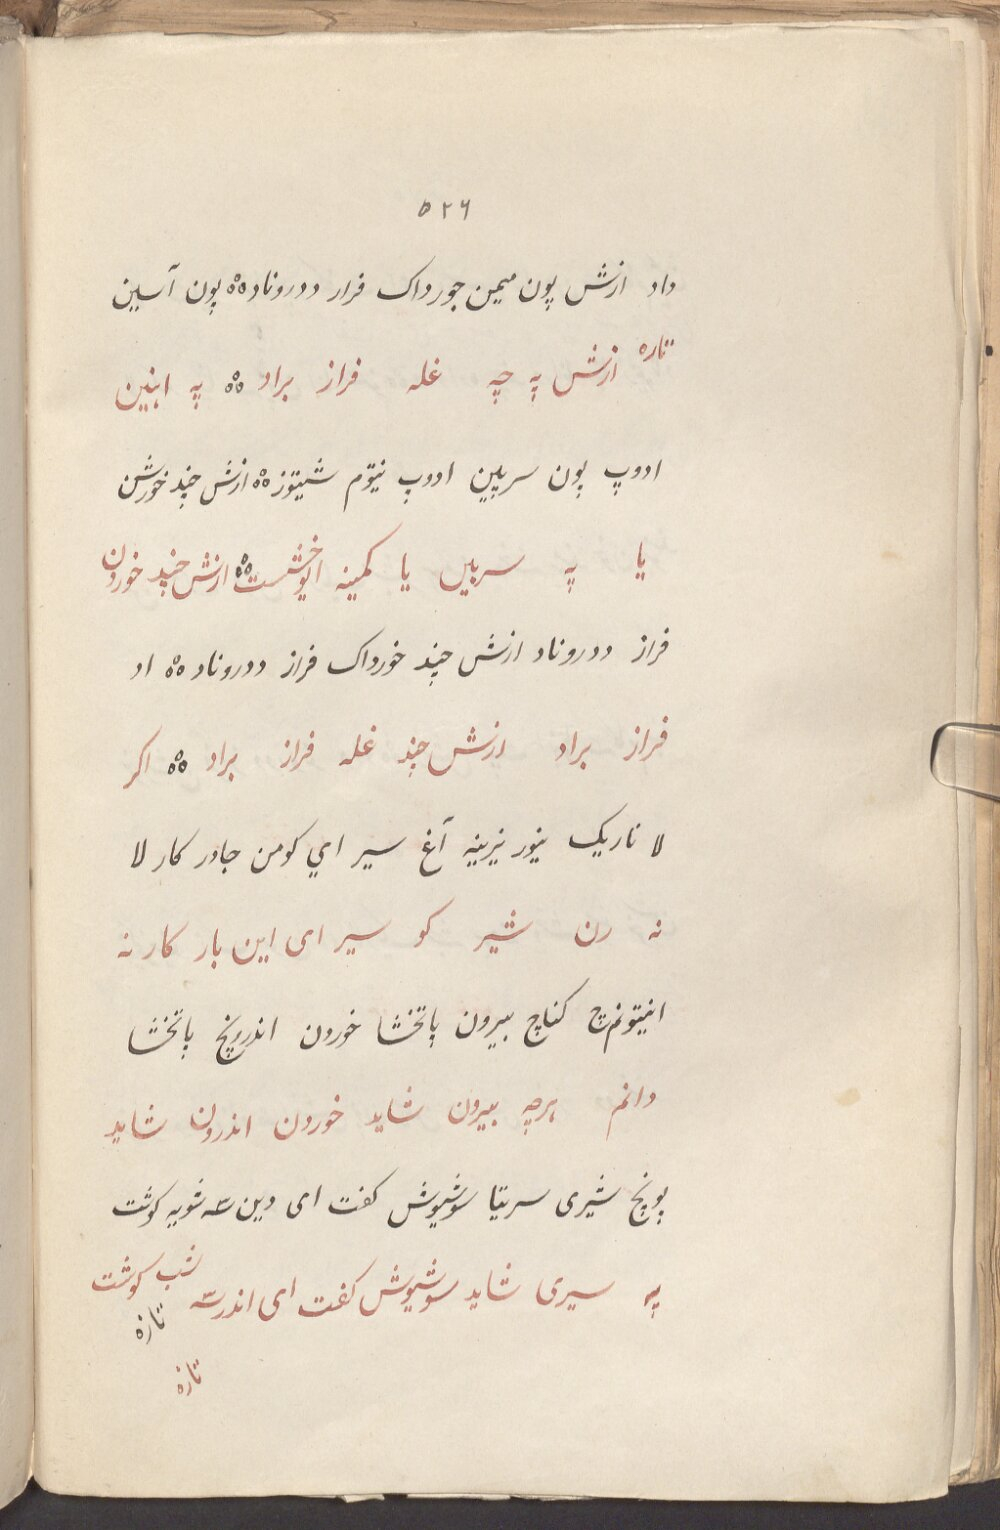 ۵۲۶
داد ازش پون میمن جورداک فرار ددروناد ەەە پون آسین
تاره ازش په چه غله فراز براد ەەە په اهنین
ادوپ پون سرپین ادوپ نیتوم شیتوز ەەە ازش چند خورشن
یا په سربیں یا کمینه ەەە ازش چند خوردن
فراز ددروناد ازش چند خورداک فراز ددروناد ەەە اد
فراز براد ازش چند غله فراز براد ەەە اکر
لا ناریک نیور نیزینه آغ سیر ای کومن جادر کار لا
نه رن شیر کو سیر ای این بار کار نه
انیتونم چ کناچ بیرون پاتخشا خوردن اندرونچ پاتخشا
دانم هرچه بیرون شاید خوردن اندرون شاید
پونچ شیری سریتا سوشیوش کفت ای دین سه شویه کوشت
په سیری شاید سوشیوش کفت ای اندر سه شب کوشت
تازه
تازه